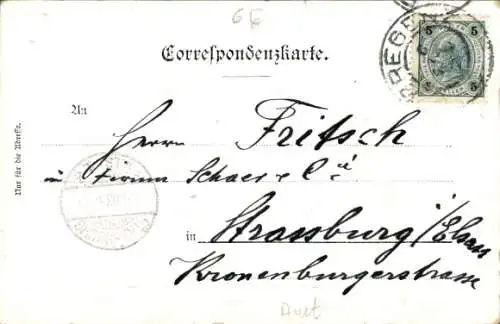 6E
5 5
BREGEN
Correspondenzkarte.
An
Nur für die Adresse.
Herrn Fritsch
in Firma Schaer & Cie
in Strassburg / Elsass
Kronenburgerstrasse